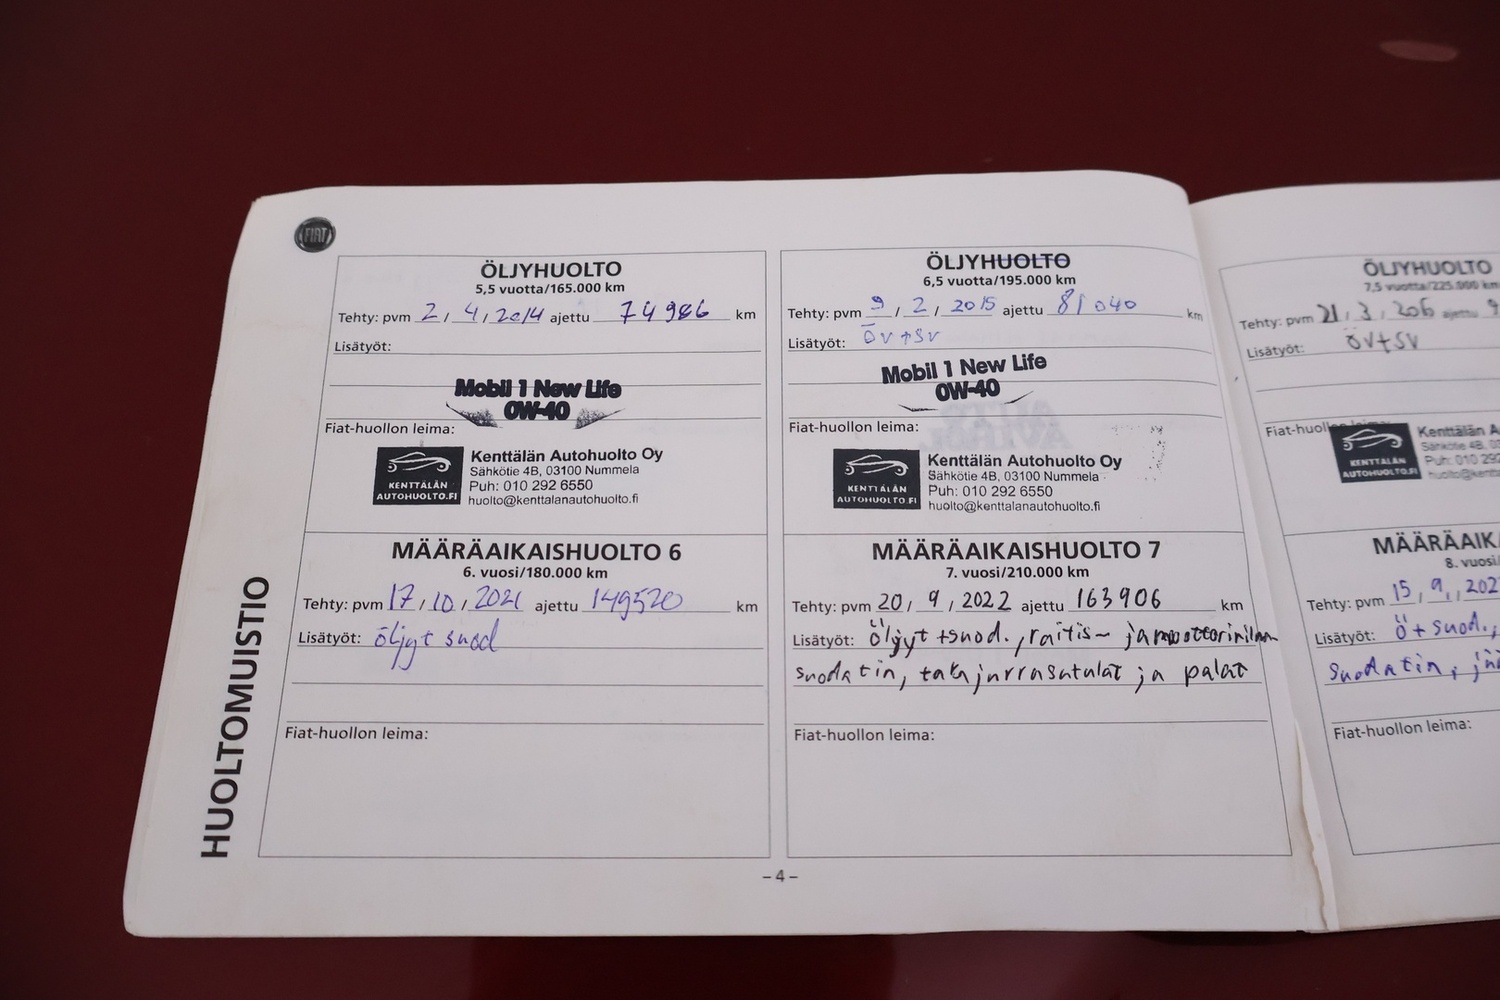 FIAT
HUOLTOMUISTIO
ÖLJYHUOLTO
5,5 vuotta/165.000 km
Tehty: pvm 2, 4, 2014 ajettu 74986 km
Lisätyöt:
Mobil 1 New Life
0W-40
Fiat-huollon leima:
KENTTÄLÄN
AUTOHUOLTO.FI
Kenttälän Autohuolto Oy
Sähkötie 4B, 03100 Nummela
Puh: 010 292 6550
huolto@kenttalanautohuolto.fi
ÖLJYHUOLTO
6,5 vuotta/195.000 km
Tehty: pvm 9, 2, 2015 ajettu 81040 km
Lisätyöt: öv+sv
Mobil 1 New Life
0W-40
Fiat-huollon leima:
KENTTÄLÄN
AUTOHUOLTO.FI
Kenttälän Autohuolto Oy
Sähkötie 4B, 03100 Nummela
Puh: 010 292 6550
huolto@kenttalanautohuolto.fi
MÄÄRÄAIKAISHUOLTO 6
6. vuosi/180.000 km
Tehty: pvm 17, 10, 2021 ajettu 149520 km
Lisätyöt: öljyt suod
Fiat-huollon leima:
MÄÄRÄAIKAISHUOLTO 7
7. vuosi/210.000 km
Tehty: pvm 20, 9, 2022 ajettu 163906 km
Lisätyöt: öljyt +suod., raitis- ja moottorinilman
suodatin, takajarrusatulat ja palat
Fiat-huollon leima:
– 4 –
ÖLJYHUOLTO
7,5 vuotta/225.000 km
Tehty: pvm 21, 3, 206 ajettu
Lisätyöt: öv+sv
Fiat-huollon leima:
KENTTÄLÄN
AUTOHUOLTO.FI
Kenttälän A
Sähkötie 4B, 0
Puh: 010 292
huolto@kenttala
MÄÄRÄAIK
8. vuosi/
Tehty: pvm 15, 9, 202
Lisätyöt: ö+suod.,
suodatin,
Fiat-huollon leima: